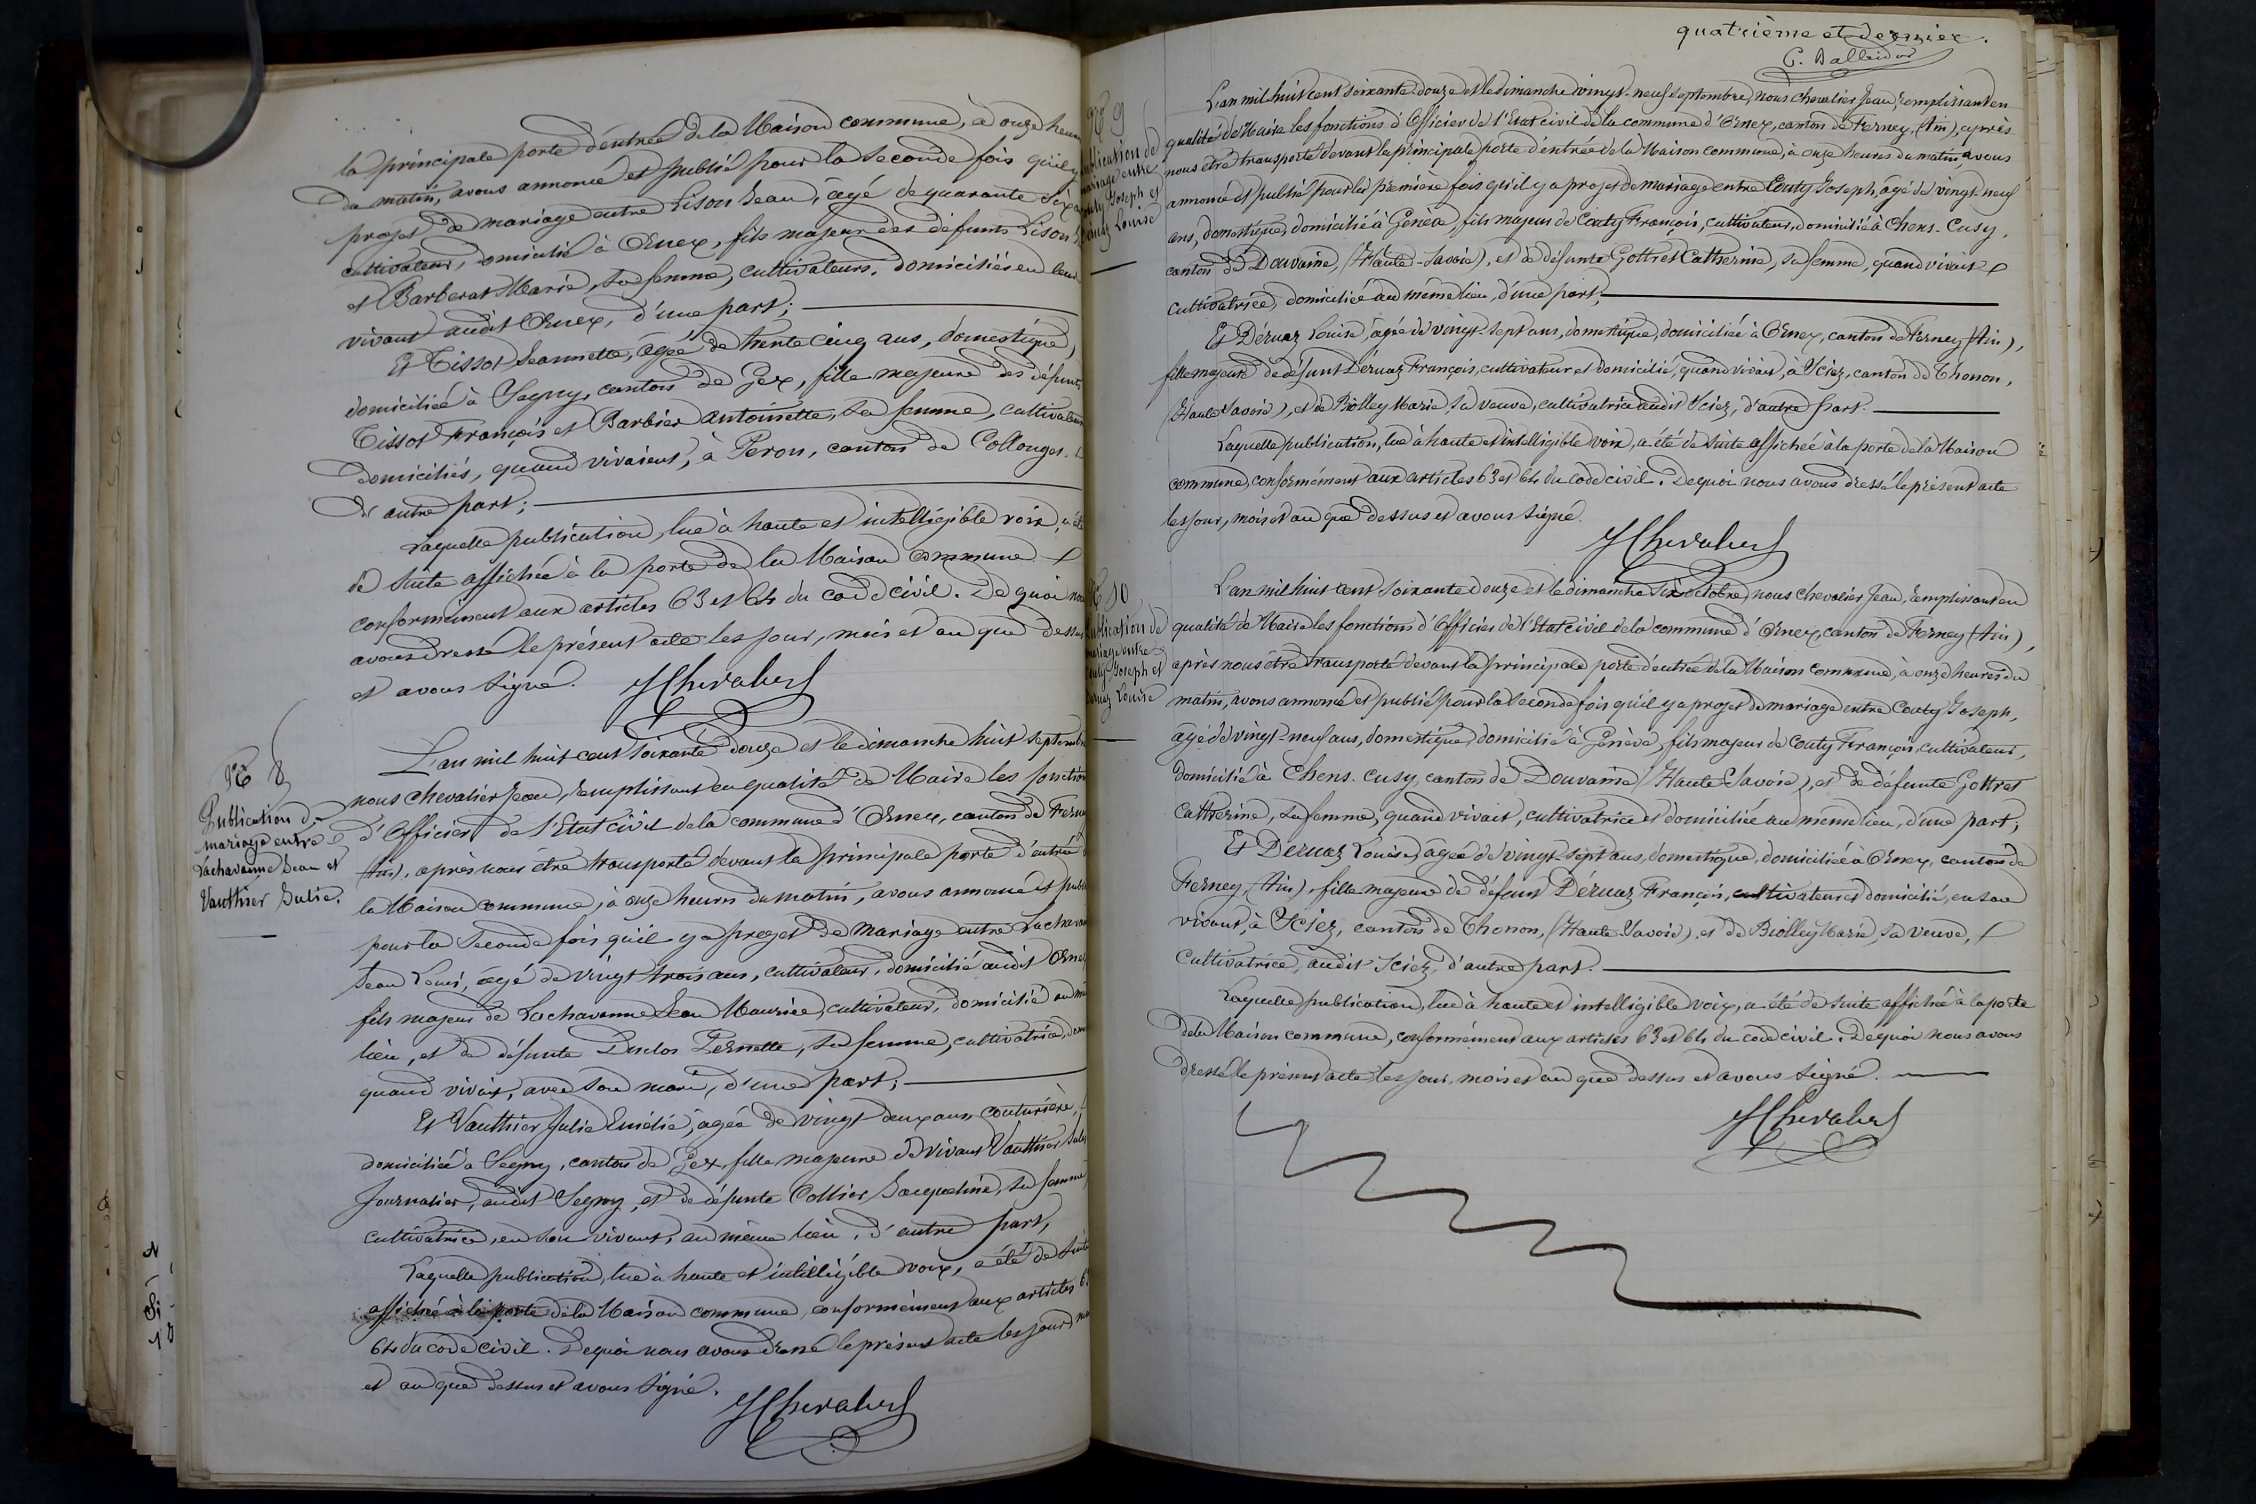 la principale porte d'entrée de la Maison commune, à onze heures
du matin, avons annoncé et publié pour la seconde fois qu'il y
projet de mariage entre Lison Jean, âgé de quarante six
cultivateur, domicilié à Ornex, fils majeur des défunts Lison
et Barberat Marie, sa femme, cultivateurs, domiciliés en leur
vivant audit Ornex, d'une part;
Et Tissot Jeannette, âgée de trente cinq ans, domestique,
domiciliée à Segny, canton de Gex, fille majeure des défunts
Tissot François et Barbier Antoinette, sa femme, cultivateurs
domiciliés, quand vivaient, à Peron, canton de Collonges
d'autre part;
Laquelle publication, lue à haute et intelligible voix, a été
de suite affichée à la porte de la Maison commune
conformément aux articles 63 et 64 du code civil. De quoi nous
avons dressé le présent acte les jour, mois et an que dessus
et avons signé. JChevalier
N° 8
Publication de
mariage entre
Lachavanne Jean et
Vauthier Julie.
L'an mil huit cent soixante douze et le dimanche huit septembre
nous Chevalier Jean, remplissant en qualité de Maire les fonctions
d'Officier de l'Etat civil de la commune d'Ornex, canton de Ferney
(Ain), après nous être transporté devant la principale porte d'entrée
la Maison commune, à onze heures du matin, avons annoncé et publié
pour la seconde fois qu'il y a projet de mariage entre Lachavanne
Jean Louis, âgé de vingt trois ans, cultivateur, domicilié audit Ornex
fils majeur de Lachavanne Jean Maurice, cultivateur, domicilié au même
lieu, et de défunte Duclos Pernette, sa femme, cultivatrice,
quand vivait, avec son mari, d'une part;
Et Vauthier Julie Emélie, âgée de vingt deux ans, couturière,
domiciliée à Segny, canton de Gex, fille majeure de vivant Vauthier Jules
journalier, audit Segny, et de défunte Collier Jacqueline, sa femme
cultivatrice, en son vivant, au même lieu, d'autre part,
Laquelle publication, lue à haute et intelligible voix, a été de suite
affichée à la porte de la Maison commune, conformément aux articles 63
64 du code civil. De quoi nous avons dressé le présent acte les jour
et an que dessus et avons signé.
JChevalier
quatrième et dernier.
N° 9
Publication de
mariage entre
Couty Joseph et
Déruaz Louise
L'an mil huit cent soixante douze et le dimanche vingt-neuf septembre, nous Chevalier Jean, remplissant en
qualité de Maire les fonctions d'Officier de l'Etat civil de la commune d'Ornex, canton de Ferney, (Ain), après
nous être transporté devant la principale porte d'entrée de la Maison commune, à onze heures du matin, avons
annoncé et publié pour la première fois qu'il y a projet de mariage entre Couty Joseph, âgé de vingt-neuf
ans, domestique, domicilié à Genève, fils majeur de Couty François, cultivateur, domicilié à Chens-Cusy,
canton de Douvaine, (Haute-Savoie), et de défunte Gottret Catherine, sa femme, quand vivait
cultivatrice, domiciliée au même lieu, d'une part;
Et Déruaz Louise, âgée de vingt-sept ans, domestique, domiciliée à Ornex, canton de Ferney (Ain),
fille majeure de défunt Déruaz François, cultivateur et domicilié, quand vivait, à Sciez, canton de Thonon,
(Haute Savoie), et de Biolley Marie, sa veuve, cultivatrice audit Sciez, d'autre part.
Laquelle publication, lue à haute et intelligible voix, a été de suite affichée à la porte de la Maison
commune, conformément aux articles 63 et 64 du code civil. De quoi nous avons dressé le présent acte
les jour, mois et an que dessus et avons signé.
JChevalier
N° 10
Publication de
mariage entre
Couty Joseph et
Déruaz Louise
L'an mil huit cent soixante douze et le dimanche six octobre, nous Chevalier Jean, remplissant en
qualité de Maire les fonctions d'Officier de l'Etat civil de la commune d'Ornex, canton de Ferney (Ain),
après nous être transporté devant la principale porte d'entrée de la Maison commune, à onze heures du
matin, avons annoncé et publié pour la seconde fois qu'il y a projet de mariage entre Couty Joseph,
âgé de vingt-neuf ans, domestique, domicilié à Genève, fils majeur de Couty François, cultivateur,
domicilié à Chens-Cusy, canton de Douvaine (Haute Savoie), et de défunte Gottret
Catherine, sa femme, quand vivait, cultivatrice et domiciliée au même lieu, d'une part;
Et Déruaz Louise, âgée de vingt-sept ans, domestique, domiciliée à Ornex, canton de
Ferney, (Ain), fille majeure de défunt Déruaz François, cultivateur et domicilié, en son
vivant, à Sciez, canton de Thonon, (Haute Savoie), et de Biolley Marie, sa veuve,
cultivatrice, audit Sciez, d'autre part.
Laquelle publication, lue à haute et intelligible voix, a été de suite affichée à la porte
de la Maison commune, conformément aux articles 63 et 64 du code civil. De quoi nous avons
dressé le présent acte les jour, mois et an que dessus et avons signé.
JChevalier